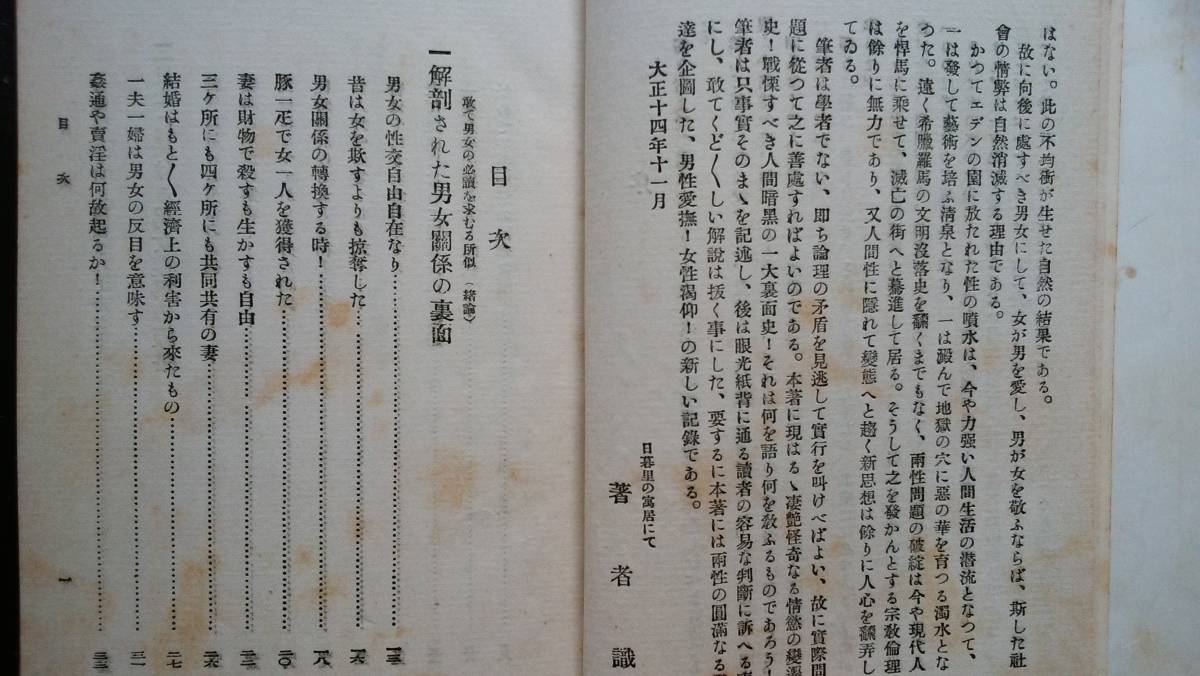 はない。此の不均衝が生せた自然の結果である。
故に向後に處すべき男女にして、女が男を愛し、男が女を敬ふならば、斯した社
會の情弊は自然消滅する理由である。
かつてエデンの園に放たれた性の噴水は、今や力强い人間生活の潜流となつて、
一は發して藝術を培ふ清泉となり、一は澱んで地獄の穴に惡の華を育つる濁水とな
つた。遠く希臘羅馬の文明沒落史を飜くまでもなく、兩性問題の破綻は今や現代人
を悍馬に乘せて、滅亡の街へと驀進して居る。そうして之を發かんとする宗敎倫理
は餘りに無力であり、又人間性に隱れて變態へと趨く新思想は餘りに人心を飜弄し
てゐる。
筆者は學者でない、卽ち論理の矛盾を見逃して實行を叫けべばよい、故に實際問
題に從つて之に善處すればよいのである。本著に現はるゝ凄艶怪奇なる情慾の變遷
史！戰慄すべき人間暗黑の一大裏面史！それは何を語り何を敎ふるものであろう！
筆者は只事實そのまゝを記述し、後は眼光紙背に通る讀者の容易な判斷に訴へる
にし、敢てくど〱しい解說は拔く事にした、要するに本著には兩性の圓滿なる
達を企圖した、男性愛撫！女性渴仰！の新しい記錄である。
大正十四年十一月
日暮里の寓居にて
著者識
目次
敢て男女の必讀を求むる所似（緖論）
一 解剖された男女關係の裏面
男女の性交自由自在なり……一三
昔は女を欺すよりも掠奪した……一六
男女關係の轉換する時！……一八
豚一疋で女一人を獲得された……二〇
妻は財物で殺すも生かすも自由……二二
三ケ所にも四ケ所にも共同共有の妻……二六
結婚はもと〱經濟上の利害から來たもの……二七
一夫一婦は男女の反目を意味す……三一
姦通や賣淫は何故起るか！……三三
目次
一